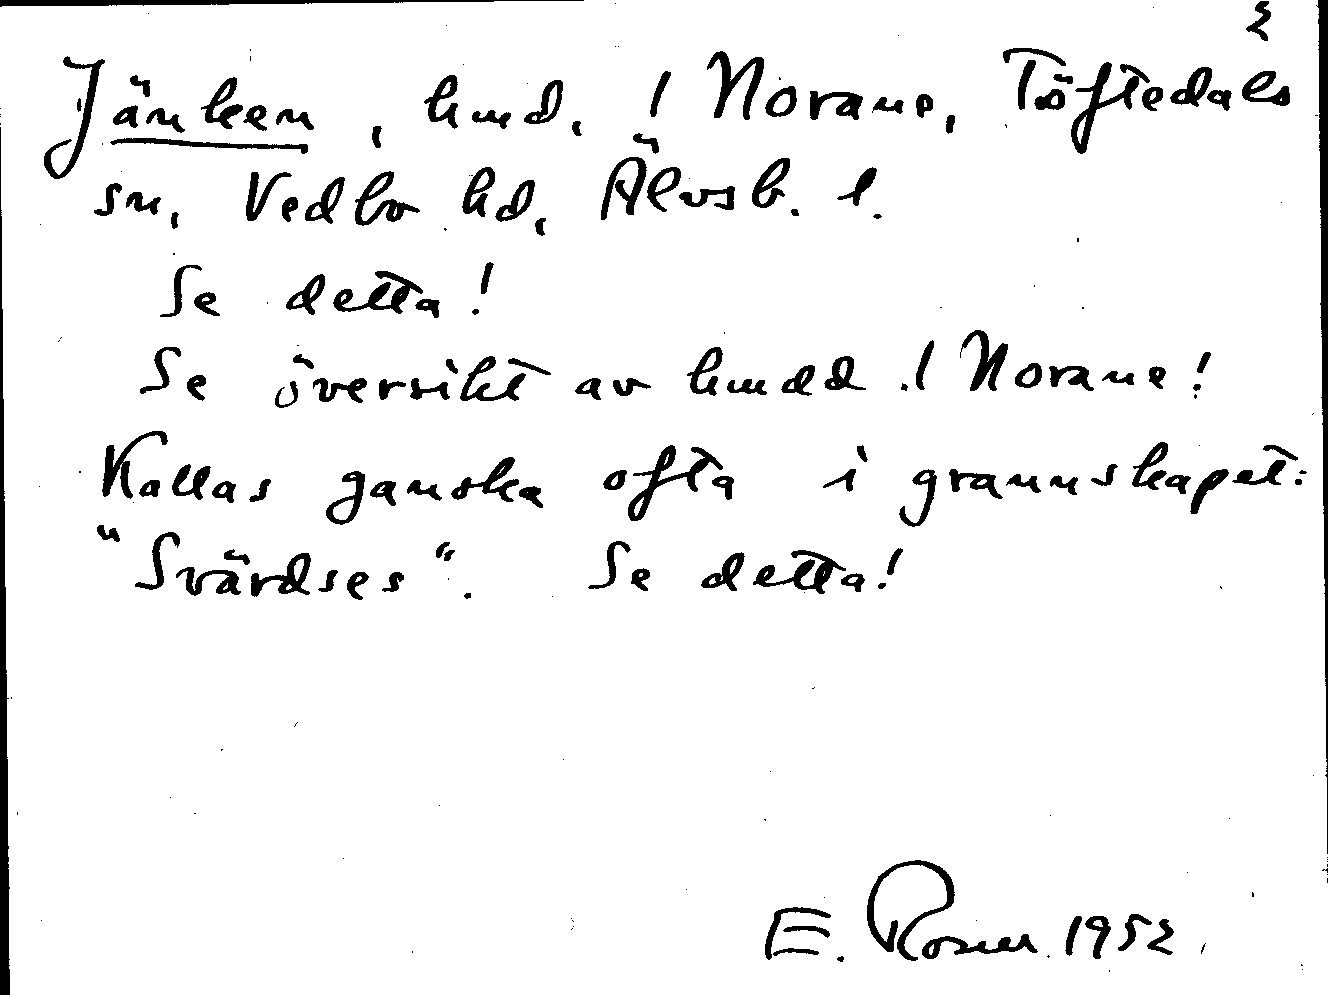 2
Jänken, hmd. / Norane, Töftedals
sn, Vedbo hd, Älvsb. l.
Se detta!
Se översikt av hmdd / Norane!
Kallas ganska ofta i grannskapet:
"Svärdses". Se detta!
E. Rosen 1952